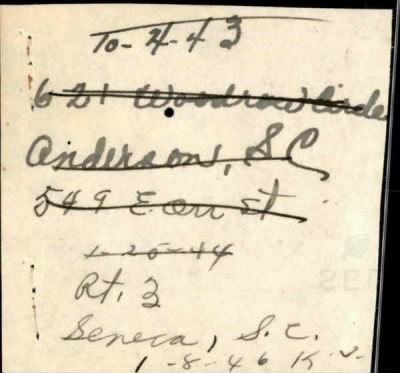 10-4-43
621 Woodrow Circle
Anderson, S C
549 E. Orr St
1-25-44
Rt. 3
Seneca, S.C.
1-8-46 K.V.